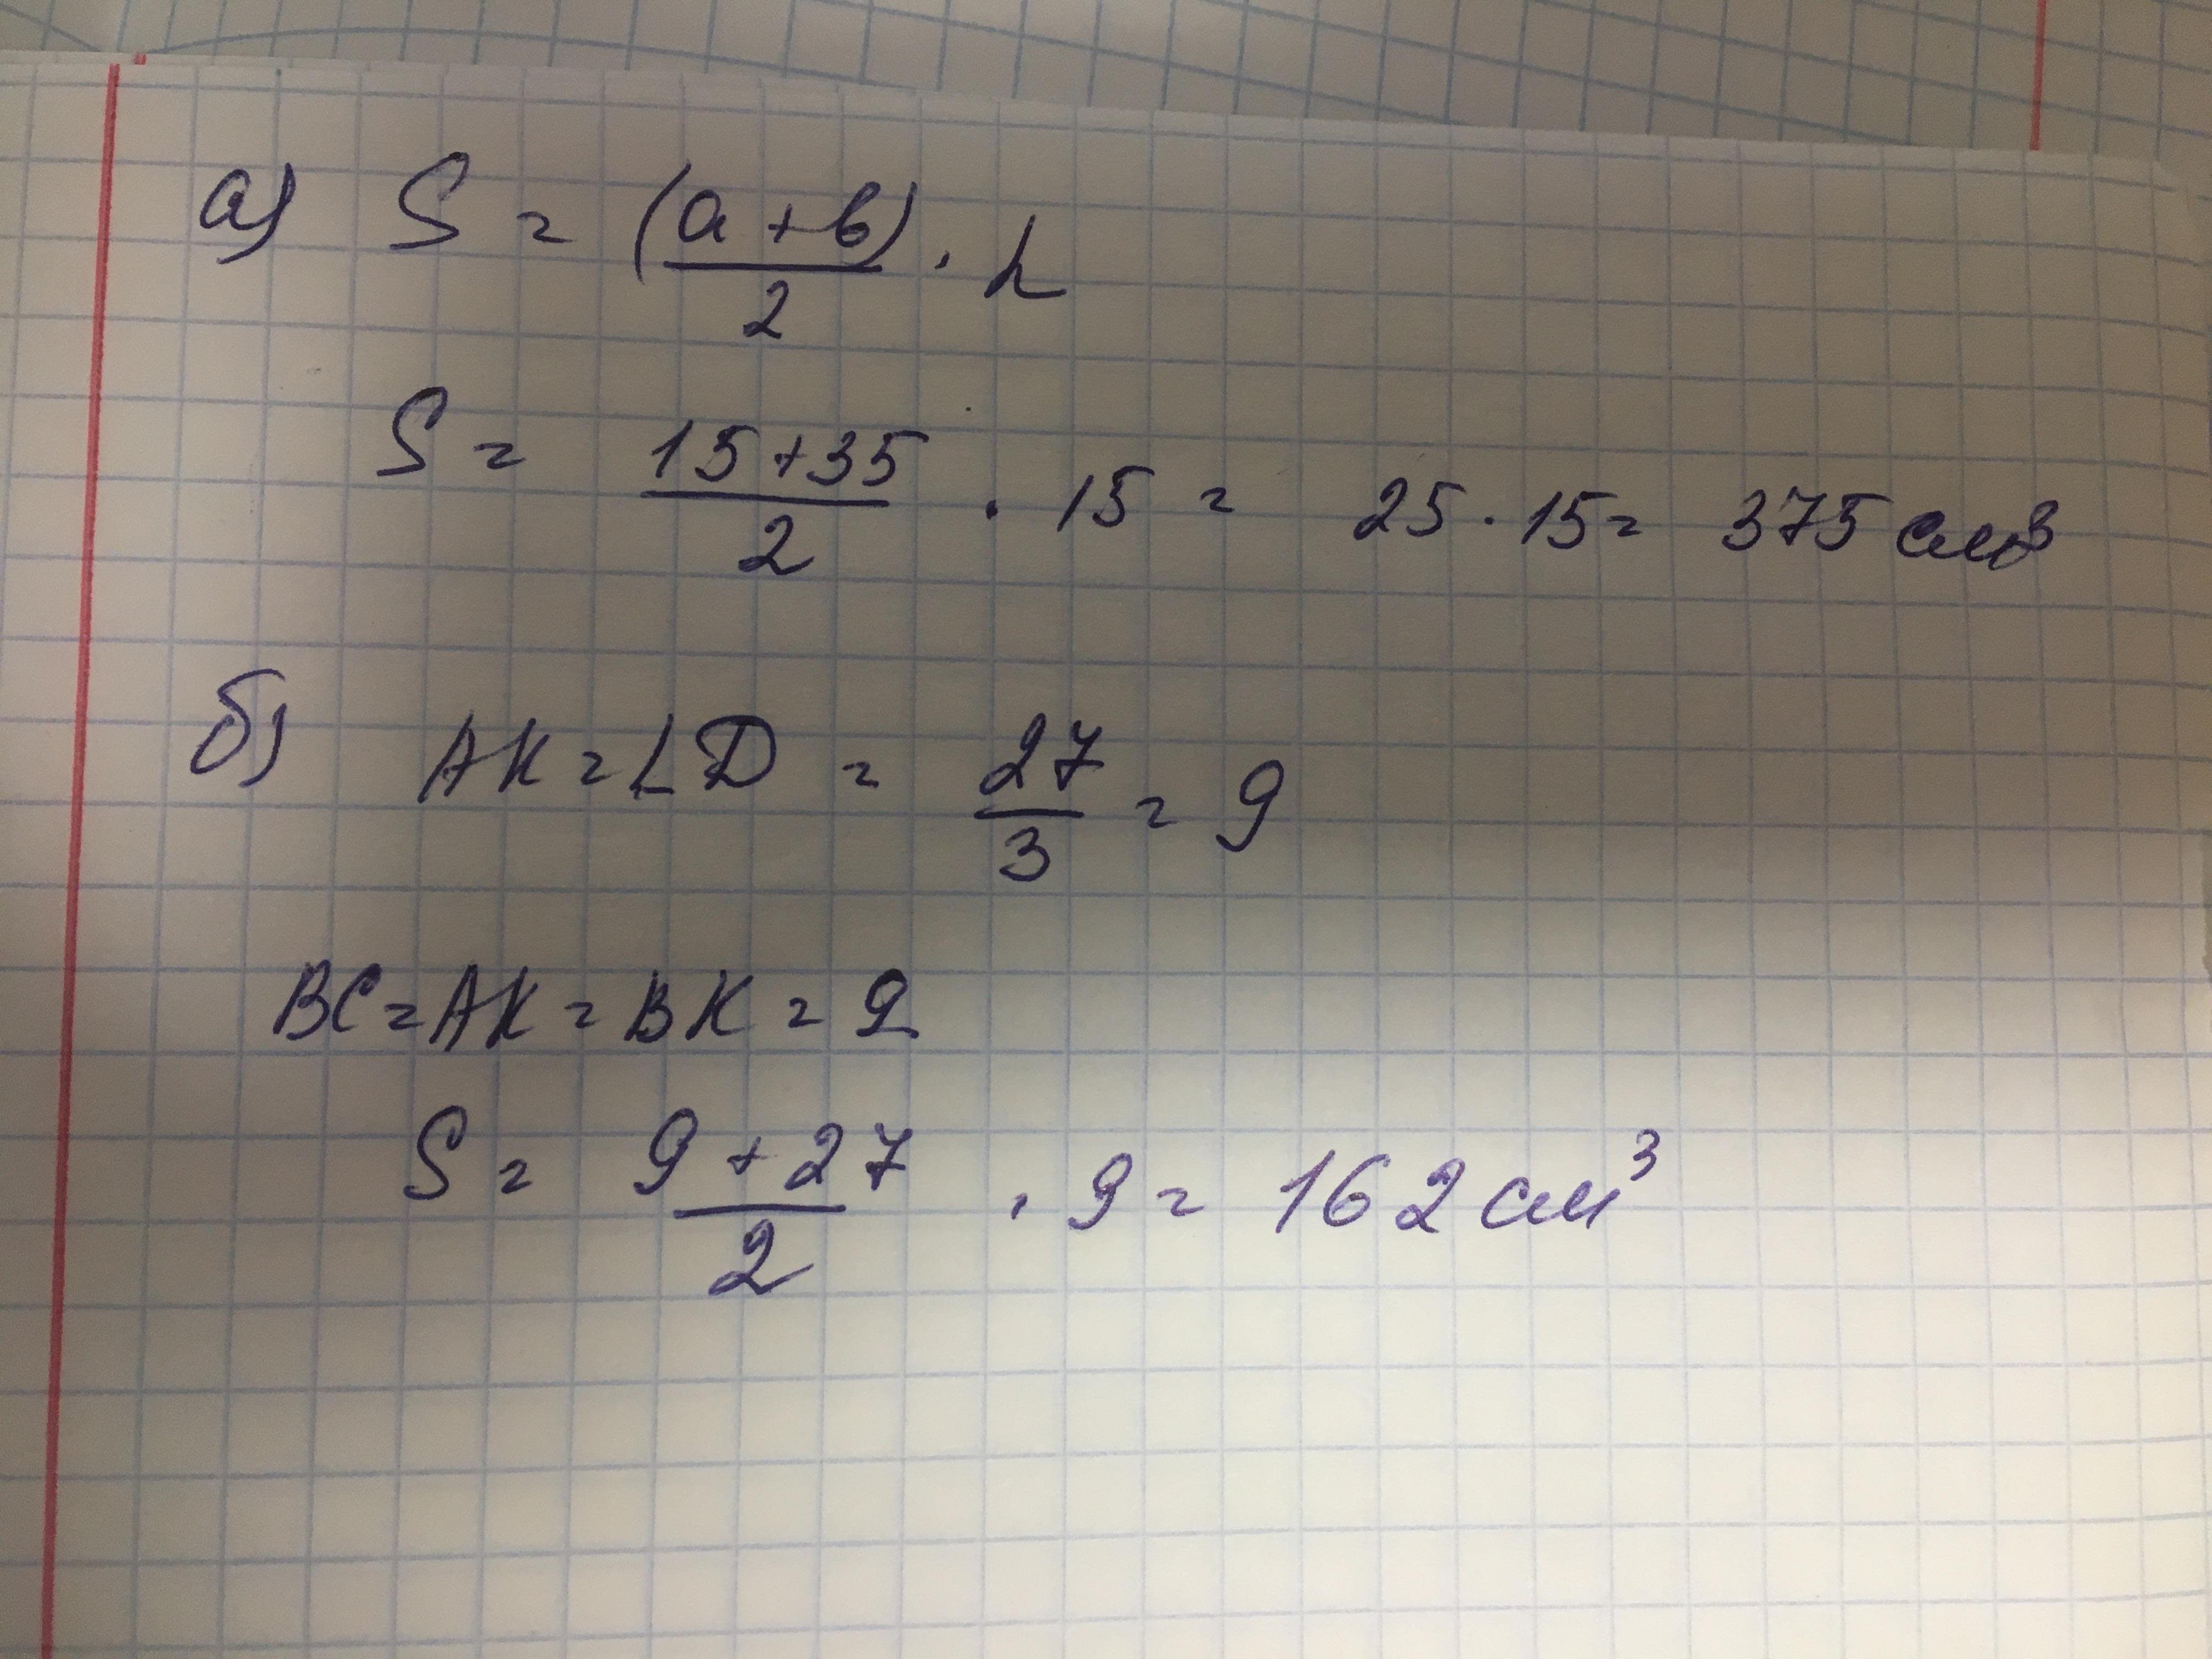 а) S = (a + b)/2 · h
S = 15+35/2 · 15 = 25 · 15 = 375 см³
б) AK = LD = 27/3 = 9
BC = AK = BK = 9
S = 9 + 27/2 · 9 = 162 см³